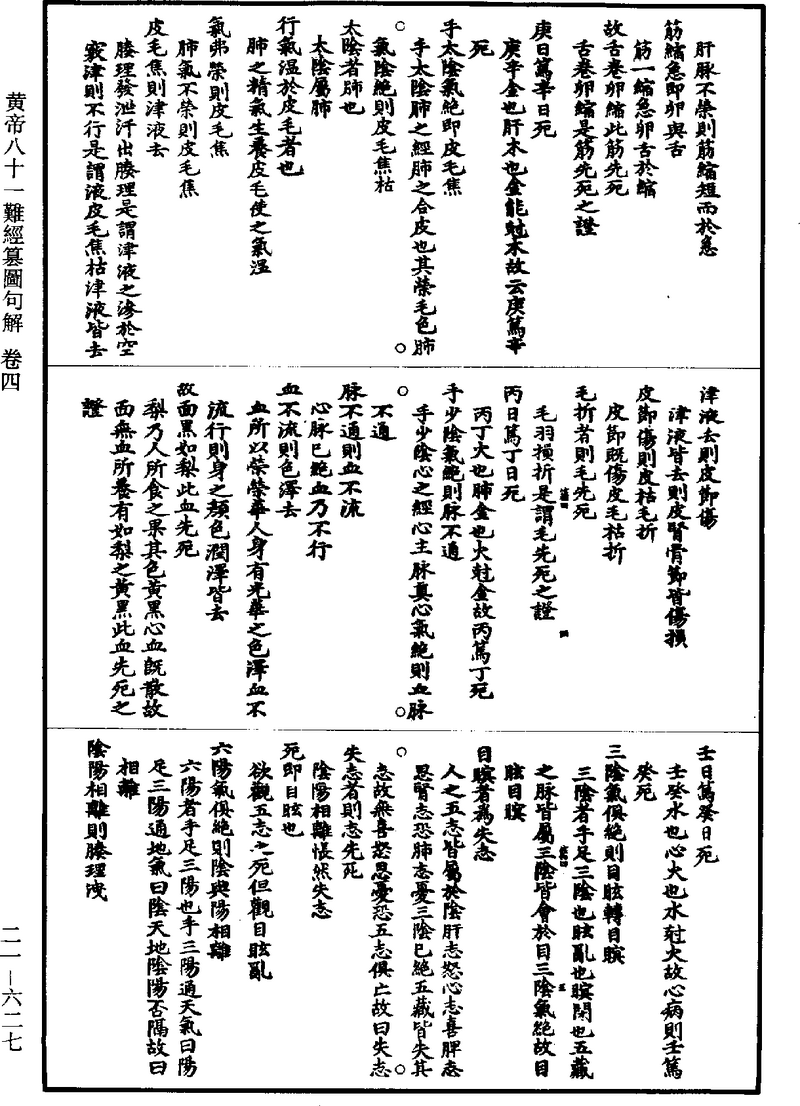 肝脉不榮則筋縮短而於急
筋縮急即卵與舌
筋一縮急卵舌於縮
故舌卷卵縮此筋先死
舌卷卵縮是筋先死之證
庚日篤辛日死
庚辛金也肝木也金能尅木故云庚篤辛
死
手太陰氣絕即皮毛焦
手太陰肺之經肺之合皮也其榮毛色肺
氣陰絕則皮毛焦枯
太陰者肺也
太陰屬肺
行氣溫於皮毛者也
肺之精氣生養皮毛使之氣溫
氣弗榮則皮毛焦
肺氣不榮則皮毛焦
皮毛焦則津液去
腠理發泄汗出腠理是謂津液之滲於空
竅津則不行是謂液皮毛焦枯津液皆去
津液去則皮節傷
津液皆去則皮腎骨節皆傷損
皮節傷則皮枯毛折
皮節既傷皮毛枯折
毛折者則毛先死
毛羽損折是謂毛先死之證
丙日篤丁日死
丙丁火也肺金也火尅金故丙篤丁死
手少陰氣絕則脉不通
手少陰心之經心主脉真心氣絕則血脉
不通
脉不通則血不流
心脉已絕血乃不行
血不流則色澤去
血所以榮榮華人身有光華之色澤血不
流行則身之顏色潤澤皆去
故面黑如梨此血先死
梨乃人所食之果其色黃黑心血既散故
面無血所養有如梨之黃黑此血先死之
證
壬日篤癸日死
壬癸水也心火也水尅火故心病則壬篤
癸死
三陰氣俱絕則目眩轉目瞑
三陰者手足三陰也眩亂也瞑閉也五藏
之脉皆屬三陰皆會於目三陰氣絕故目
眩目瞑
目瞑者為失志
人之五志皆屬於陰肝志怒心志喜脾志
思腎志恐肺志憂三陰已絕五藏皆失其
志故無喜怒思憂恐五志俱亡故曰失志
失志者則志先死
陰陽相離悵然失志
死即目眩也
欲觀五志之死但觀目眩亂
六陽氣俱絕則陰與陽相離
六陽者手足三陽也手三陽通天氣曰陽
足三陽通地氣曰陰天地陰陽否隔故曰
相離
陰陽相離則腠理洩
黄帝八十一難經纂圖句解 卷四
二一—六二七